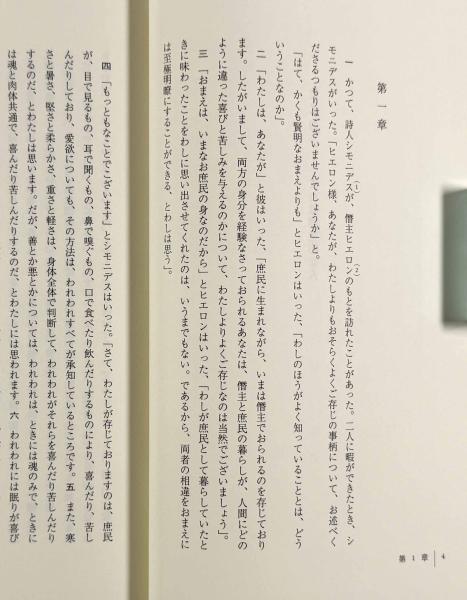 第一章
一　かつて、詩人シモニデスが、僭主ヒエロンのもとを訪れたことがあった。二人に暇ができたとき、シ
(1)
(2)
モニデスがいった。「ヒエロン様、あなたが、わたしよりもおそらくよくご存じの事柄について、お述べく
ださるつもりはございませんでしょうか」と。
「はて、かくも賢明なおまえよりも」とヒエロンはいった、「わしのほうがよく知っていることとは、どう
いうことなのか」。
二　「わたしは、あなたが」と彼はいった、「庶民に生まれながら、いまは僭主でおられるのを存じており
ます。したがいまして、両方の身分を経験なさっておられるあなたは、僭主と庶民の暮らしが、人間にどの
ように違った喜びと苦しみを与えるのかについて、わたしよりよくご存じなのは当然でございましょう」。
三　「おまえは、いまなお庶民の身なのだから」とヒエロンはいった、「わしが庶民として暮らしていたと
きに味わったことをわしに思い出させてくれたのは、いうまでもない。であるから、両者の相違をおまえに
は至極明瞭にすることができる、とわしは思う」。
四　「もっともなことでございます」とシモニデスはいった。「さて、わたしが存じておりますのは、庶民
が、目で見るもの、耳で聞くもの、鼻で嗅ぐもの、口で食べたり飲んだりするものにより、喜んだり、苦し
んだりしており、愛欲についても、その方法は、われわれすべてが承知しているところです。五　また、寒
さと暑さ、堅さと柔らかさ、重さと軽さは、身体全体で判断して、われわれがそれらを喜んだり苦しんだり
するのだ、とわたしは思います。だが、善とか悪とかについては、われわれは、ときには魂のみで、ときに
は魂と肉体共通で、喜んだり苦しんだりするのだ、とわたしには思われます。六　われわれには眠りが喜び
第1章
4